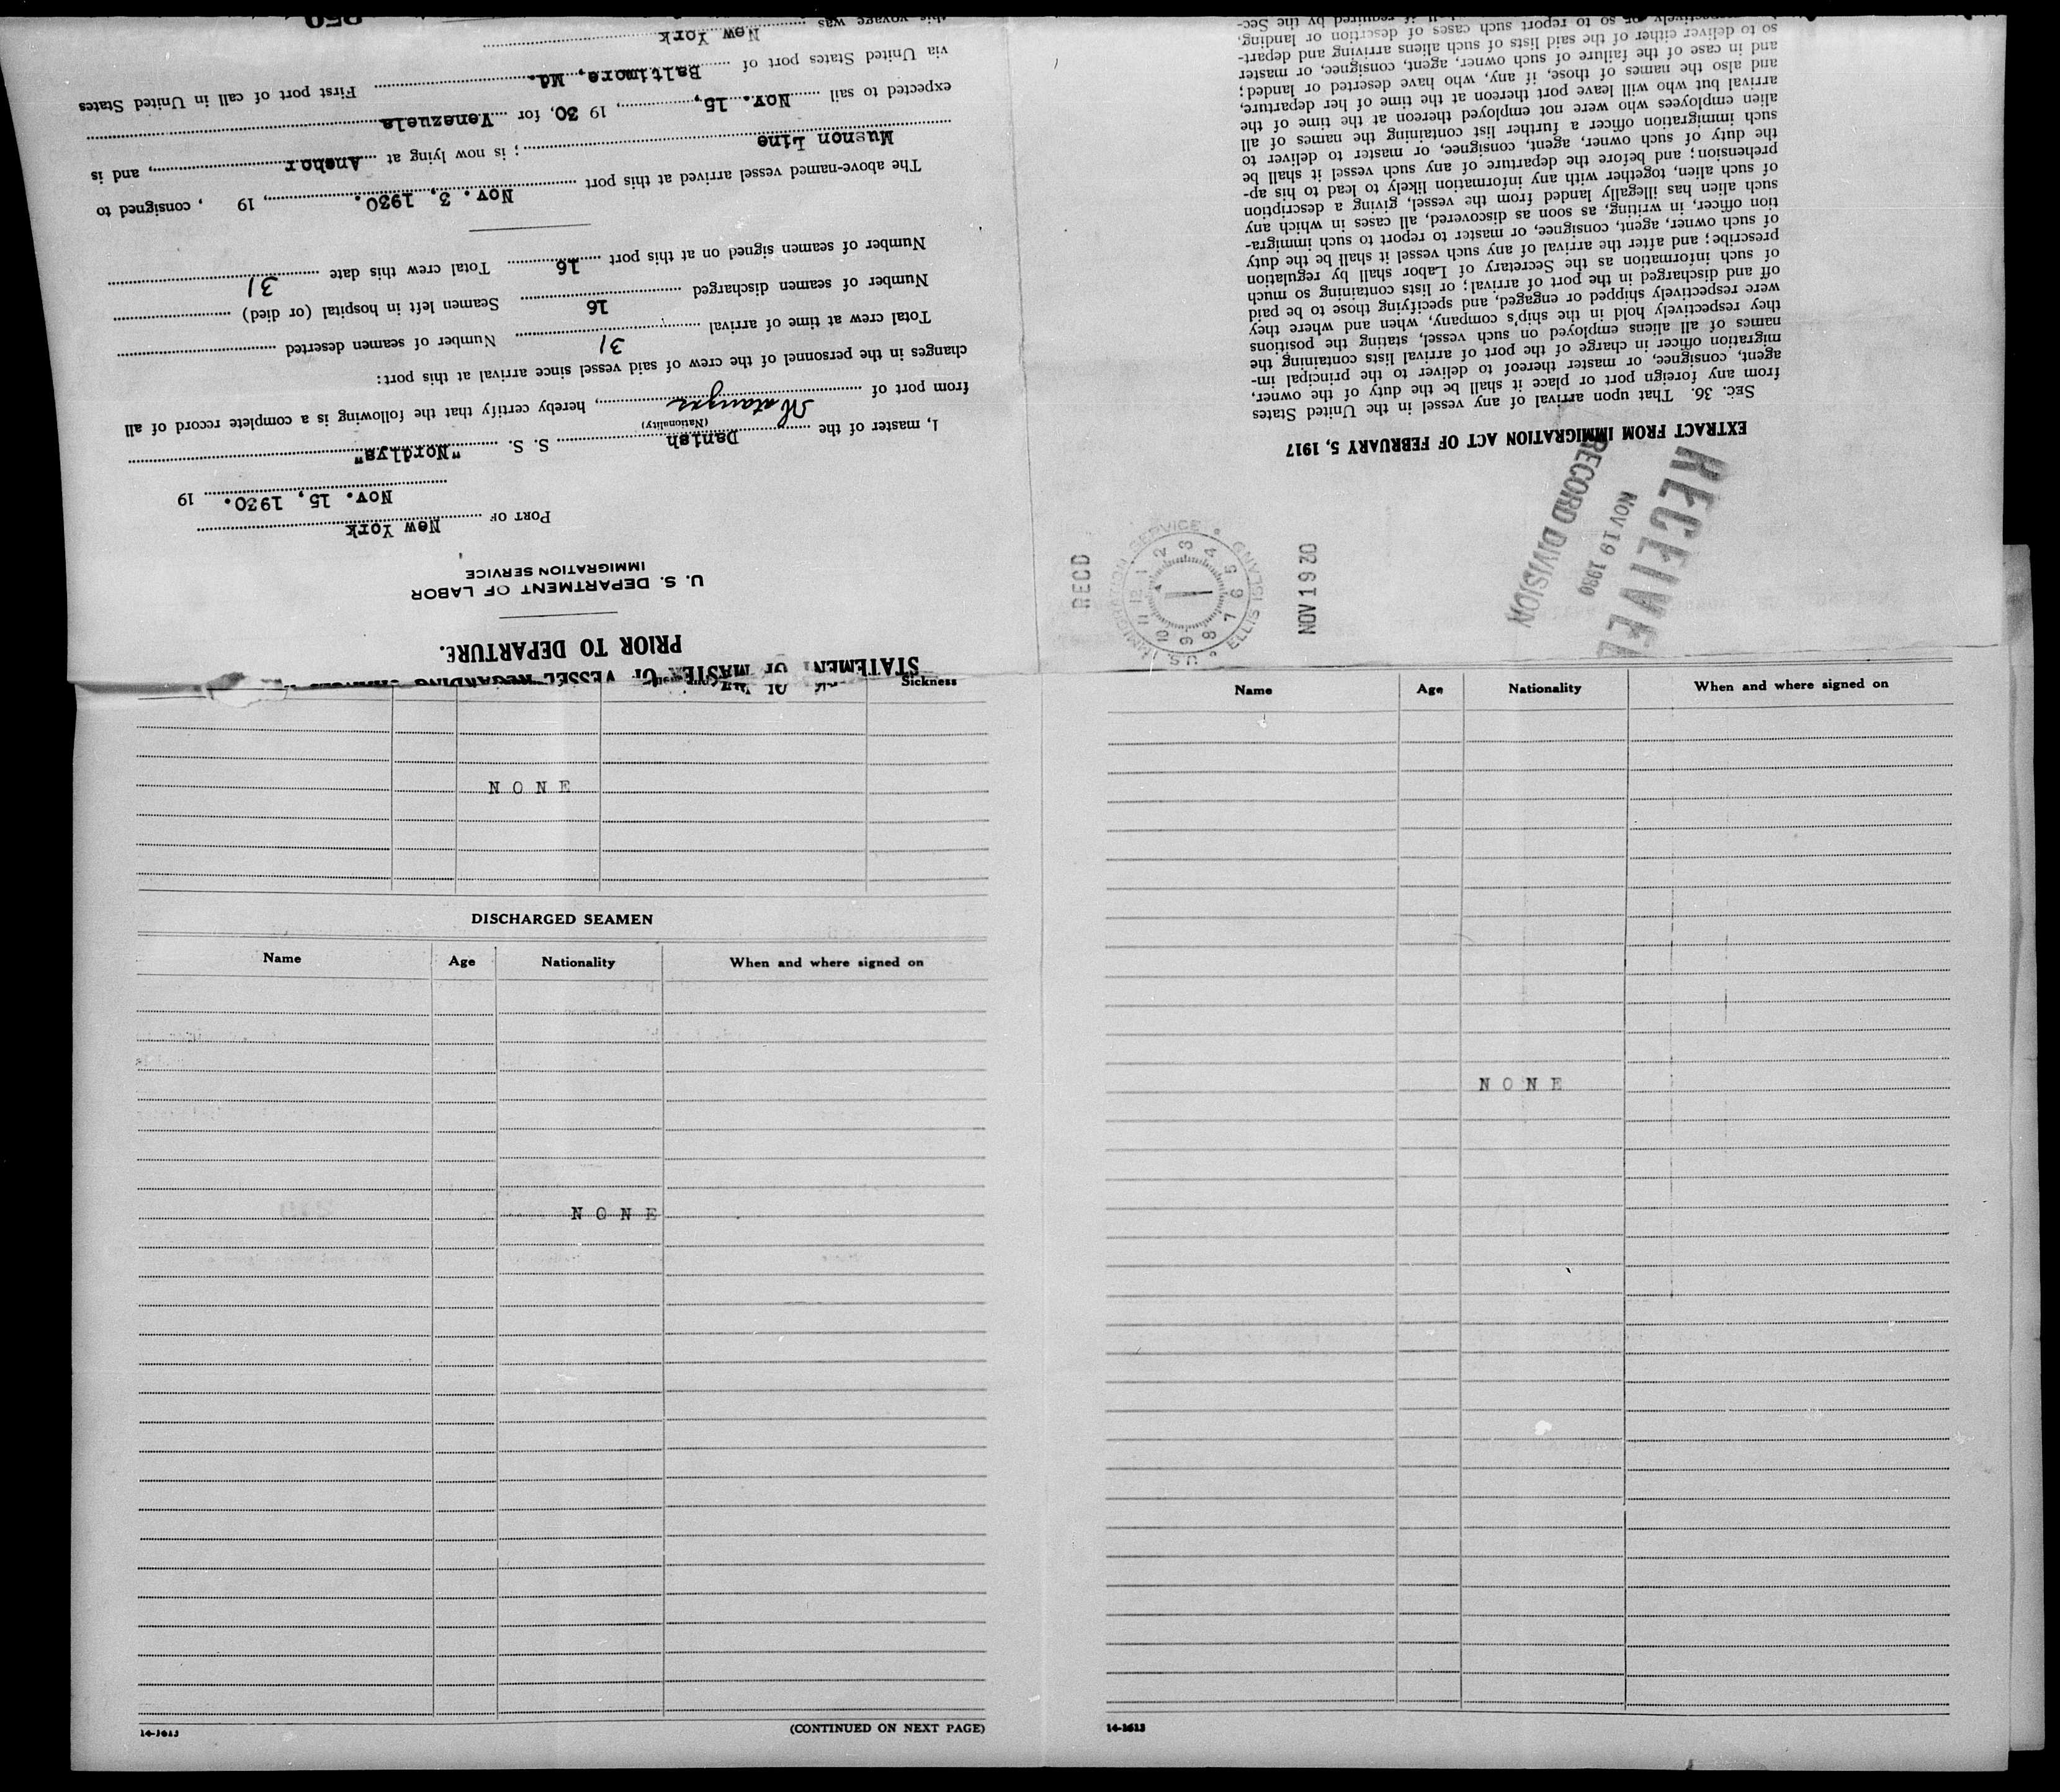 STATEMENT OF MASTER OF VESSEL REGARDING
PRIOR TO DEPARTURE.
U. S. DEPARTMENT OF LABOR
IMMIGRATION SERVICE
PORT OF New York
Nov. 15, 1930. 19
I, master of the Danish S. S. "Nordlys"
(Nationality)
from port of , hereby certify that the following is a complete record of all
changes in the personnel of the crew of said vessel since arrival at this port:
Total crew at time of arrival 31 Number of seamen deserted
Number of seamen discharged 16 Seamen left in hospital (or died)
Number of seamen signed on at this port 16 Total crew this date 31
The above-named vessel arrived at this port Nov. 3, 1930. , 19 , consigned to
Munson Line ; is now lying at Anchor , and is
expected to sail Nov. 15, , 19 30, for Venezuela
via United States port of Baltimore, Md. First port of call in United States
this voyage was New York
RECEIVED
NOV 19 1930
RECORD DIVISION
RECD
U.S. IMMIGRATION SERVICE ELLIS ISLAND
1 2 3 4 5 6 7 8 9 10 11 12
NOV 19 30
EXTRACT FROM IMMIGRATION ACT OF FEBRUARY 5, 1917
SEC. 36. That upon arrival of any vessel in the United States
from any foreign port or place it shall be the duty of the owner,
agent, consignee, or master thereof to deliver to the principal im-
migration officer in charge of the port of arrival lists containing the
names of all aliens employed on such vessel, stating the positions
they respectively hold in the ship's company, when and where they
were respectively shipped or engaged, and specifying those to be paid
off and discharged in the port of arrival; or lists containing so much
of such information as the Secretary of Labor shall by regulation
prescribe; and after the arrival of any such vessel it shall be the duty
of such owner, agent, consignee, or master to report to such immigra-
tion officer, in writing, as soon as discovered, all cases in which any
such alien has illegally landed from the vessel, giving a description
of such alien, together with any information likely to lead to his ap-
prehension; and before the departure of any such vessel it shall be
the duty of such owner, agent, consignee, or master to deliver to
such immigration officer a further list containing the names of all
alien employees who were not employed thereon at the time of the
arrival but who will leave port thereon at the time of her departure,
and also the names of those, if any, who have deserted or landed;
and in case of the failure of such owner, agent, consignee, or master
so to deliver either of the said lists of such aliens arriving and depart-
ing, respectively, or so to report such cases of desertion or landing,
Sickness
NONE
DISCHARGED SEAMEN
Name Age Nationality When and where signed on
NONE
14-1613 (CONTINUED ON NEXT PAGE)
Name Age Nationality When and where signed on
NONE
14-1613